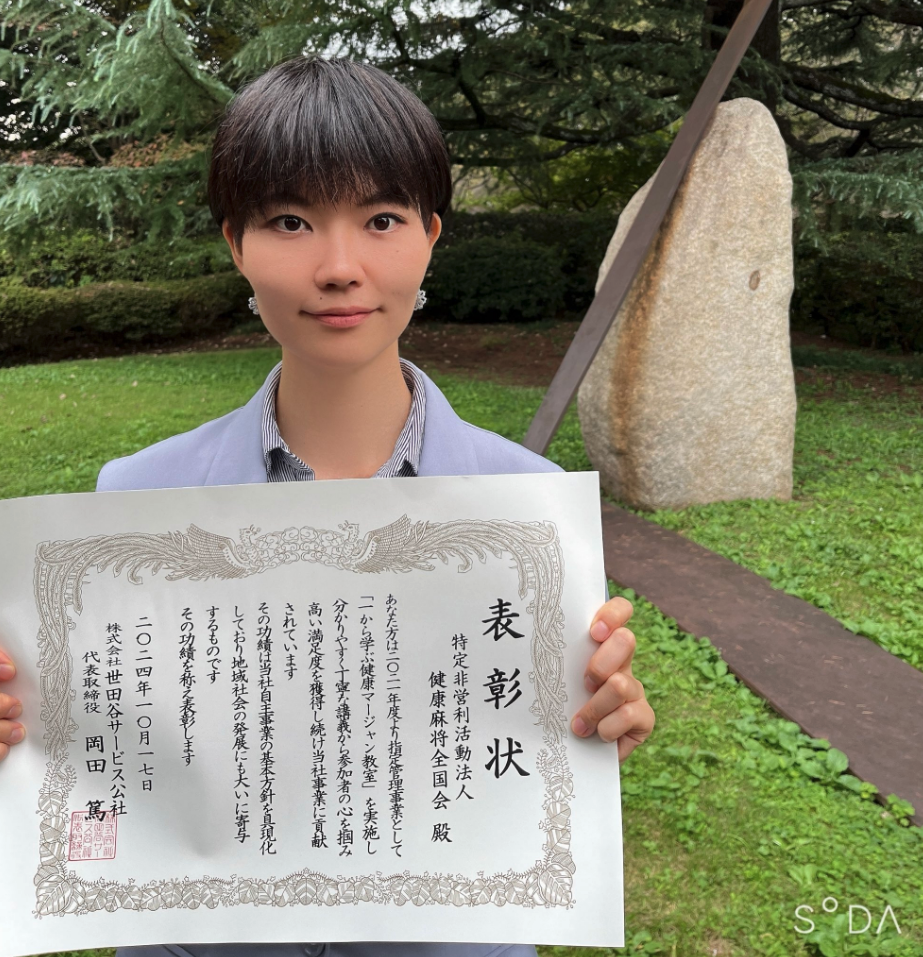 表彰状
特定非営利活動法人
健康麻将全国会 殿
あなた方は二〇二一年度より指定管理事業として
「一から学ぶ健康マージャン教室」を実施し
分かりやすく丁寧な講義から参加者の心を掴み
高い満足度を獲得し続け当社事業に貢献
されています
その功績は当社自主事業の基本方針を具現化
しており地域社会の発展にも大いに寄与
するものです
その功績を称え表彰します
二〇二四年一〇月一七日
株式会社世田谷サービス公社
代表取締役 岡田 篤
SODA